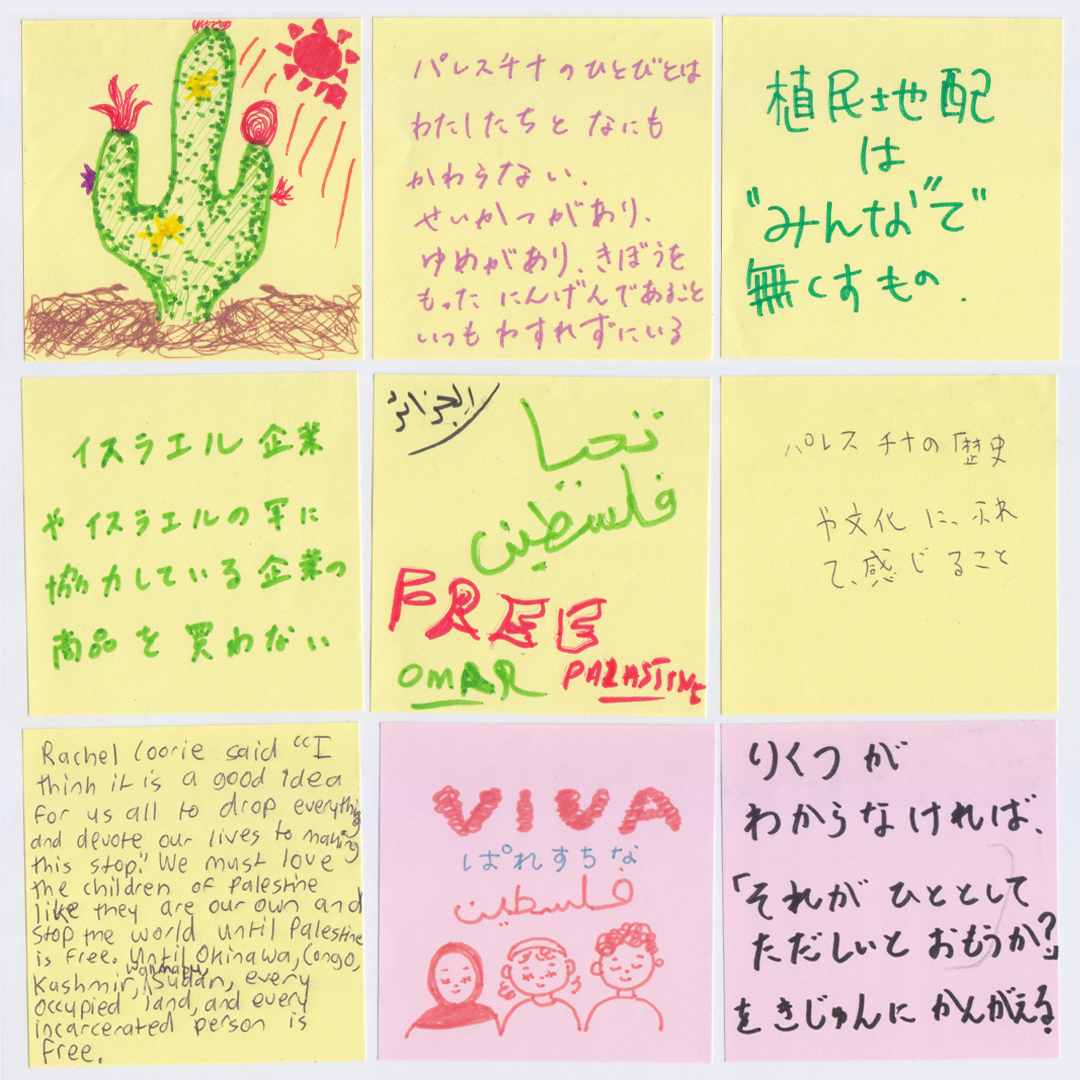 パレスチナのひとびとは
わたしたちと なにも
かわらない.
せいかつがあり、
ゆめがあり、きぼうを
もった にんげんであること
いつも わすれずにいる
植民地配
は
"みんな"で"
無くすもの.
イスラエル 企業
や イスラエルの 軍に
協力している 企業の
商品を 買わない
الجزائر
تحيا
فلسطين
FREE
OMAR PALASTINE
パレスチナの 歴史
や文化 に、ふれ
て、感じること
Rachel Corrie said "I
think it is a good idea
for us all to drop everything
and devote our lives to making
this stop". We must love
the children of Palestine
like they are our own and
stop the world until Palestine
is free. Until Okinawa, Congo,
Kashmir, Sudan, every
occupied land, and every
incarcerated person is
free.
VIVA
ぱれすちな
فلسطين
りくつが
わからなければ、
「それが ひととして
ただしいと おもうか?」
を きじゅんに かんがえる.